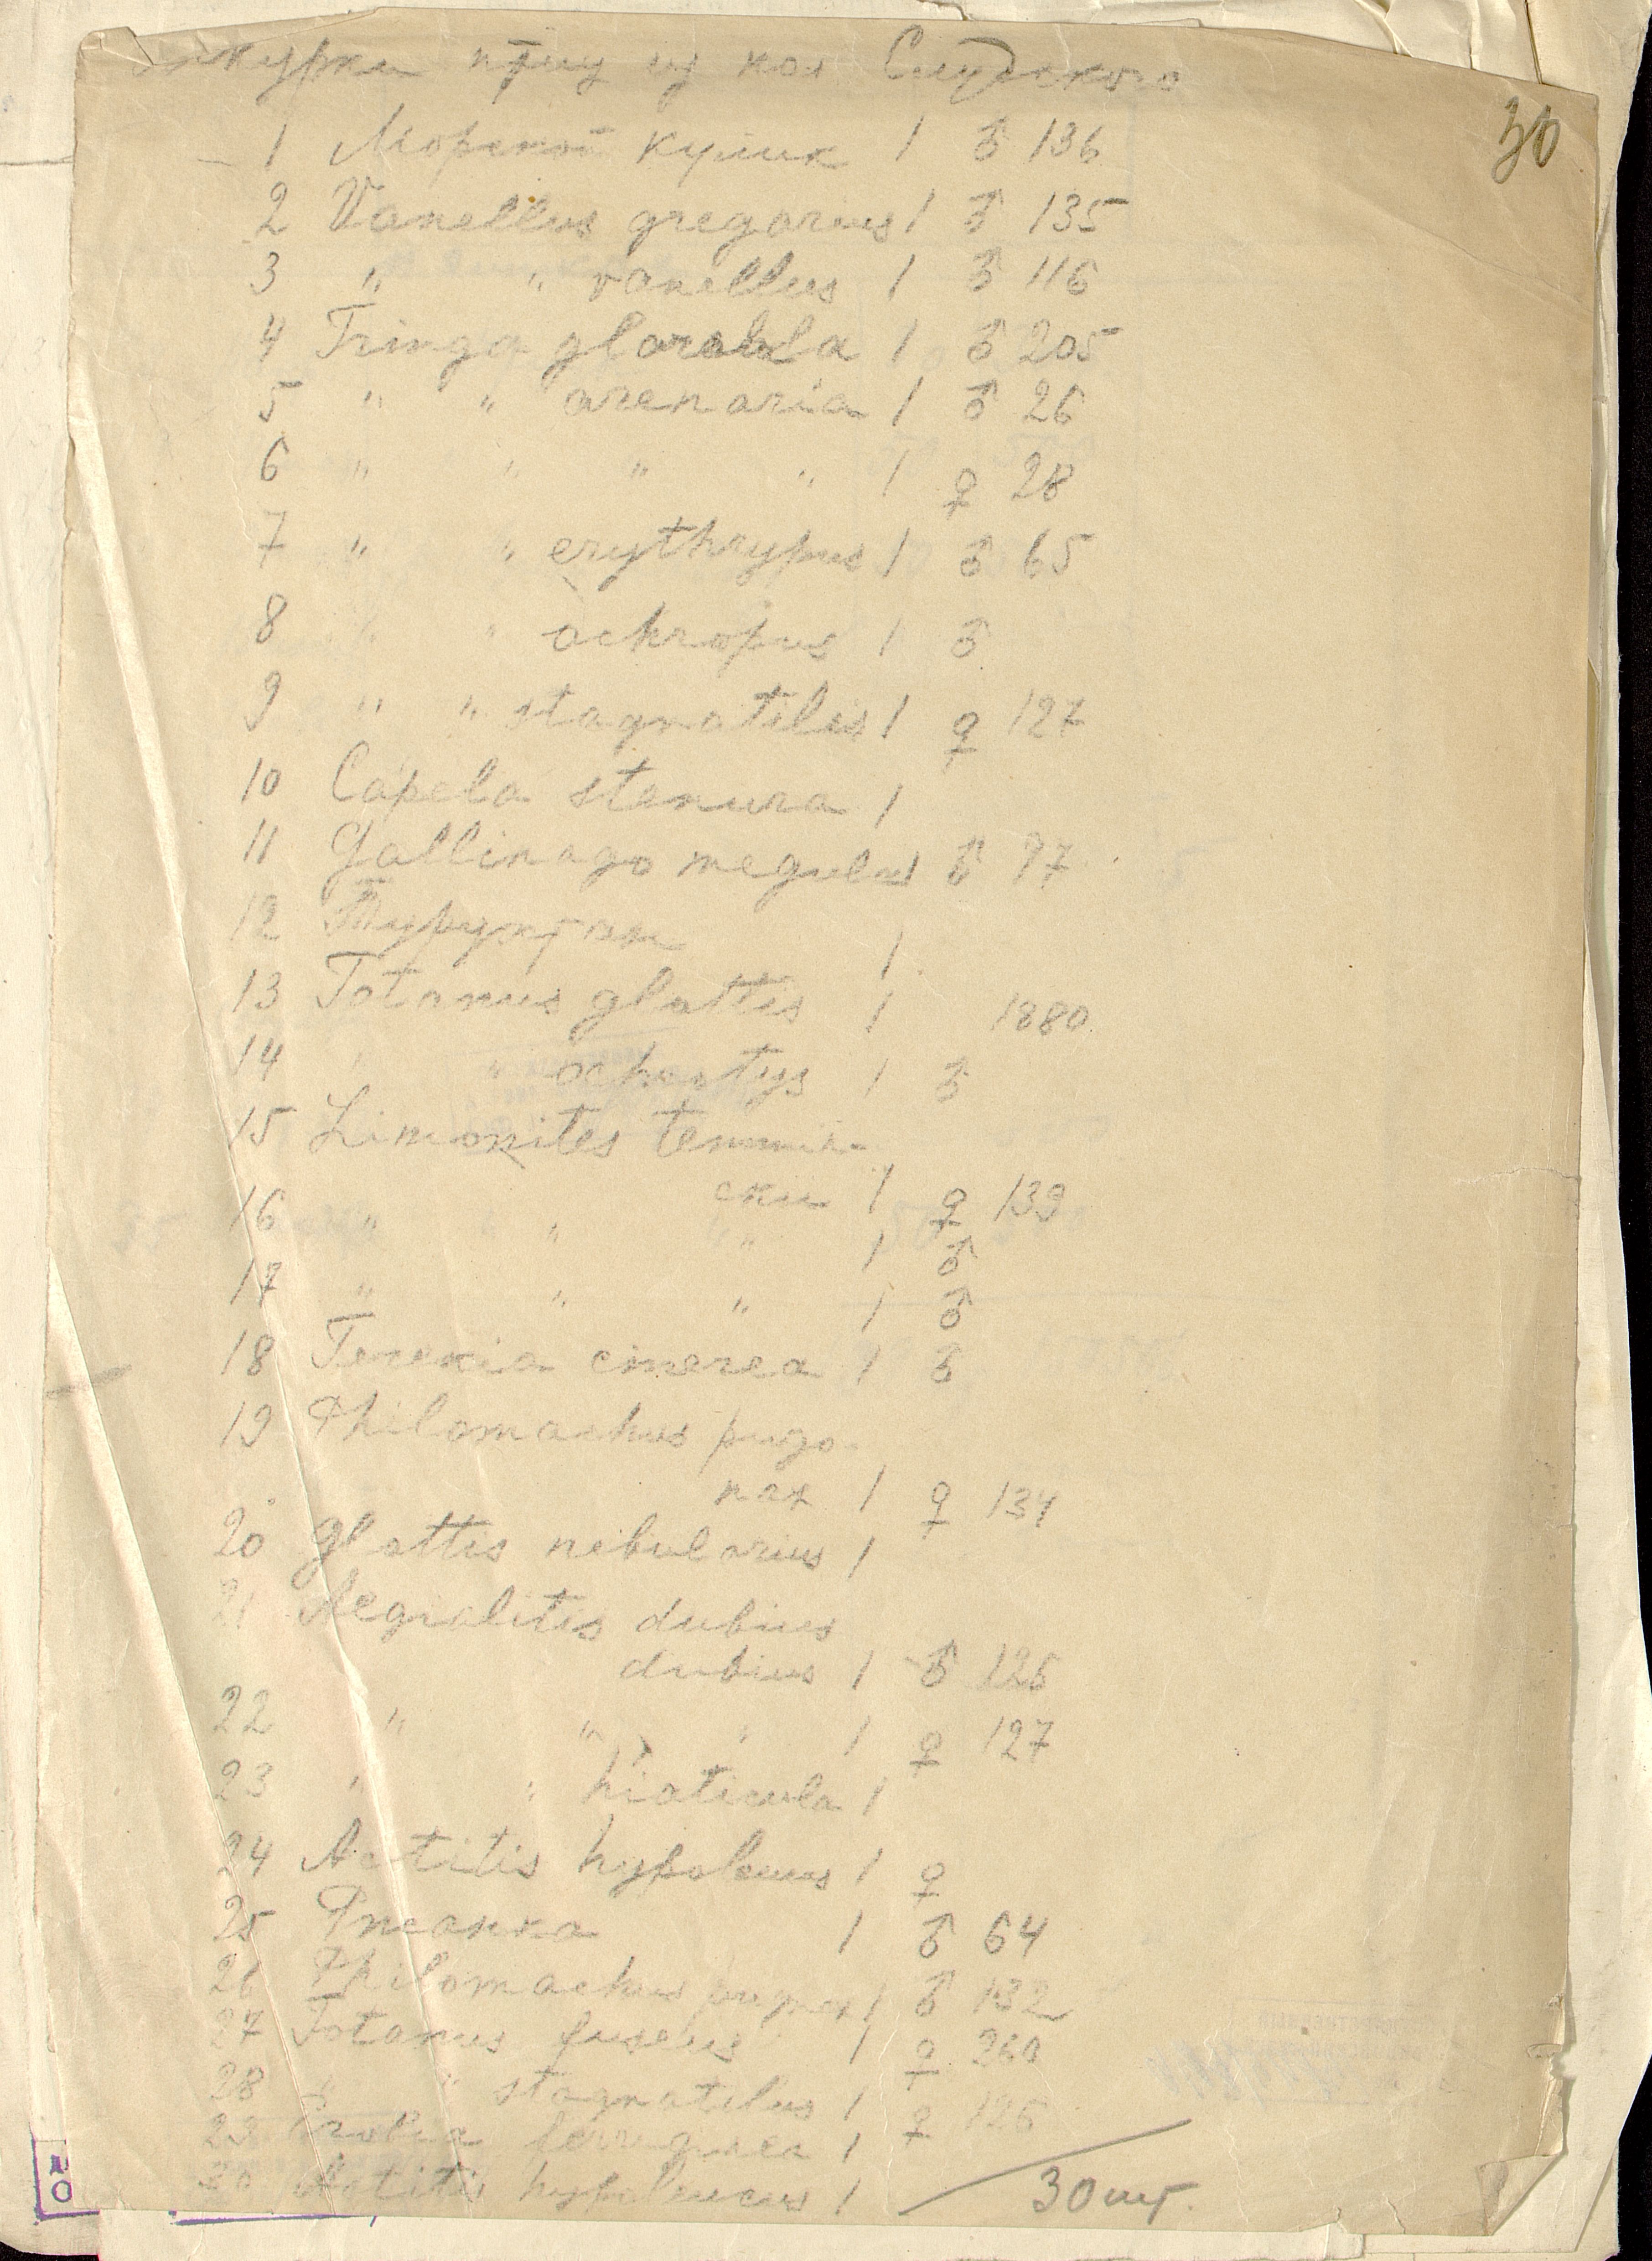 шкурки птиц из кол Слудского
30
1 Морской кулик 1 ♂ 136
2 Vanellus gregarius 1 ♂ 135
3 " " vanellus 1 ♂ 116
4 Tringa glareola 1 ♂ 205
5 " " arenaria 1 ♂ 26
6 " " " " 1 ♀ 28
7 " " erythrypus 1 ♂ 65
8 " " ochropus 1 ♂
9 " " stagnatilis 1 ♀ 127
10 Capela stenura 1
11 Gallinago megulus ♂ 97
12 Турухтан 1
13 Totanus glottis 1 1880
14 " 1 ♂
15 Limonites temmin-
ckii 1 ♀ 139
16 " " " 1 ♂
17 " " " 1 ♂
18 Terekia cinerea 1 ♂
19 Philomachus pugo-
nax 1 ♀ 134
20 Glottis nebularius 1
21 Aegialitis dubius
dubius 1 ♂ 125
22 " " " 1 ♀ 127
23 " " hiaticula 1
24 Actitis hypoleucus 1 ♀
25 Песчанка 1 ♂ 64
26 Philomachus pugnax 1 ♂ 132
27 Totanus fuscus 1 ♀ 260
28 " " stagnatilus 1 ♀ 126
29 ferruginea 1
30 Actitis hypoleucus 1
30 шт.